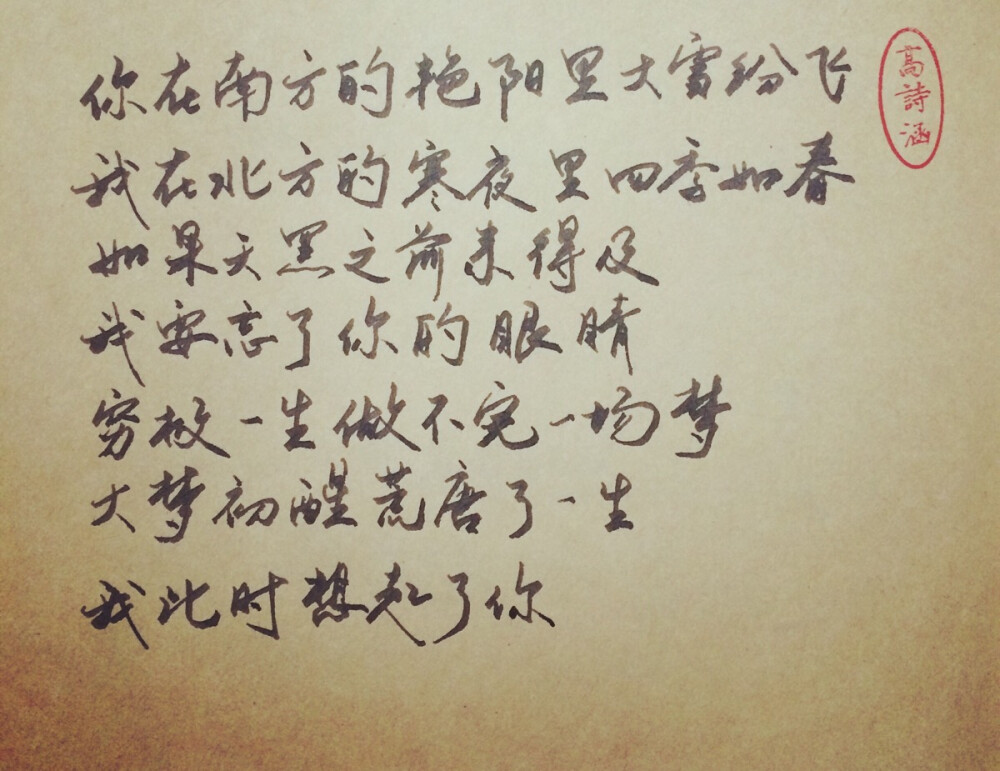 你在南方的艳阳里大雪纷飞
我在北方的寒夜里四季如春
如果天黑之前来得及
我要忘了你的眼睛
穷极一生做不完一场梦
大梦初醒荒唐了一生
我此时想起了你
高詩涵